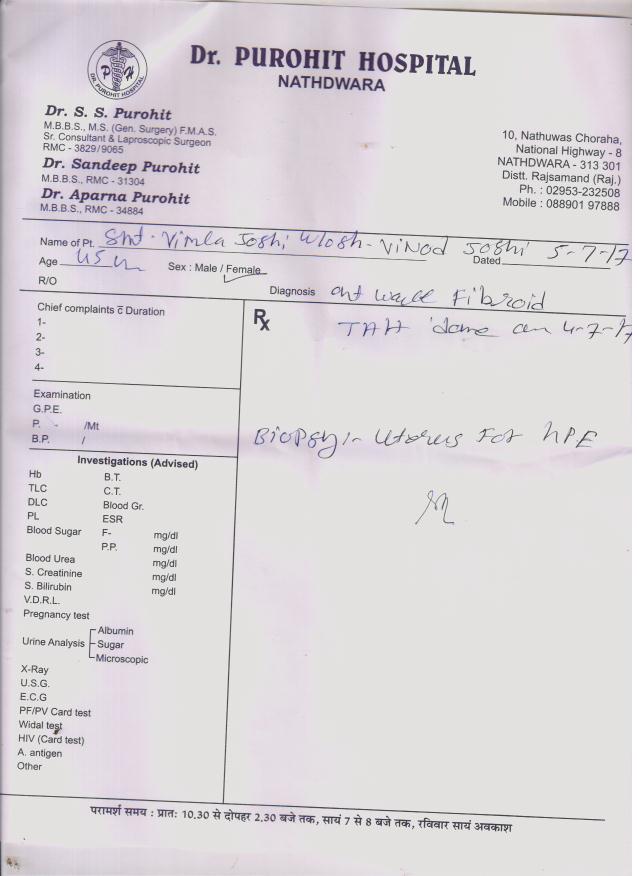 Dr. PUROHIT HOSPITAL
NATHDWARA
P H
DR. PUROHIT HOSPITAL
Dr. S. S. Purohit
M.B.B.S., M.S. (Gen. Surgery) F.M.A.S.
Sr. Consultant & Laproscopic Surgeon
RMC - 3829/9065
Dr. Sandeep Purohit
M.B.B.S., RMC - 31304
Dr. Aparna Purohit
M.B.B.S., RMC - 34884
10, Nathuwas Choraha,
National Highway - 8
NATHDWARA - 313 301
Distt. Rajsamand (Raj.)
Ph. : 02953-232508
Mobile : 088901 97888
Name of Pt. Smt. Vimla Joshi W/osh-Vinod Joshi Dated 5-7-17
Age Sex : Male / Female
R/O
Diagnosis Ant wall Fibroid
Chief complaints c̄ Duration
1-
2-
3-
4-
Rx
TAH done on 4-7-17
Examination
G.P.E.
P. - /Mt
B.P. /
Biopsy:- Uterus For HPE
Investigations (Advised)
Hb B.T.
TLC C.T.
DLC Blood Gr.
PL ESR
Blood Sugar F- mg/dl
P.P. mg/dl
Blood Urea mg/dl
S. Creatinine mg/dl
S. Bilirubin mg/dl
V.D.R.L.
Pregnancy test
Albumin
Urine Analysis Sugar
Microscopic
X-Ray
U.S.G.
E.C.G
PF/PV Card test
Widal test
HIV (Card test)
A. antigen
Other
परामर्श समय : प्रातः 10.30 से दोपहर 2.30 बजे तक, सायं 7 से 8 बजे तक, रविवार सायं अवकाश